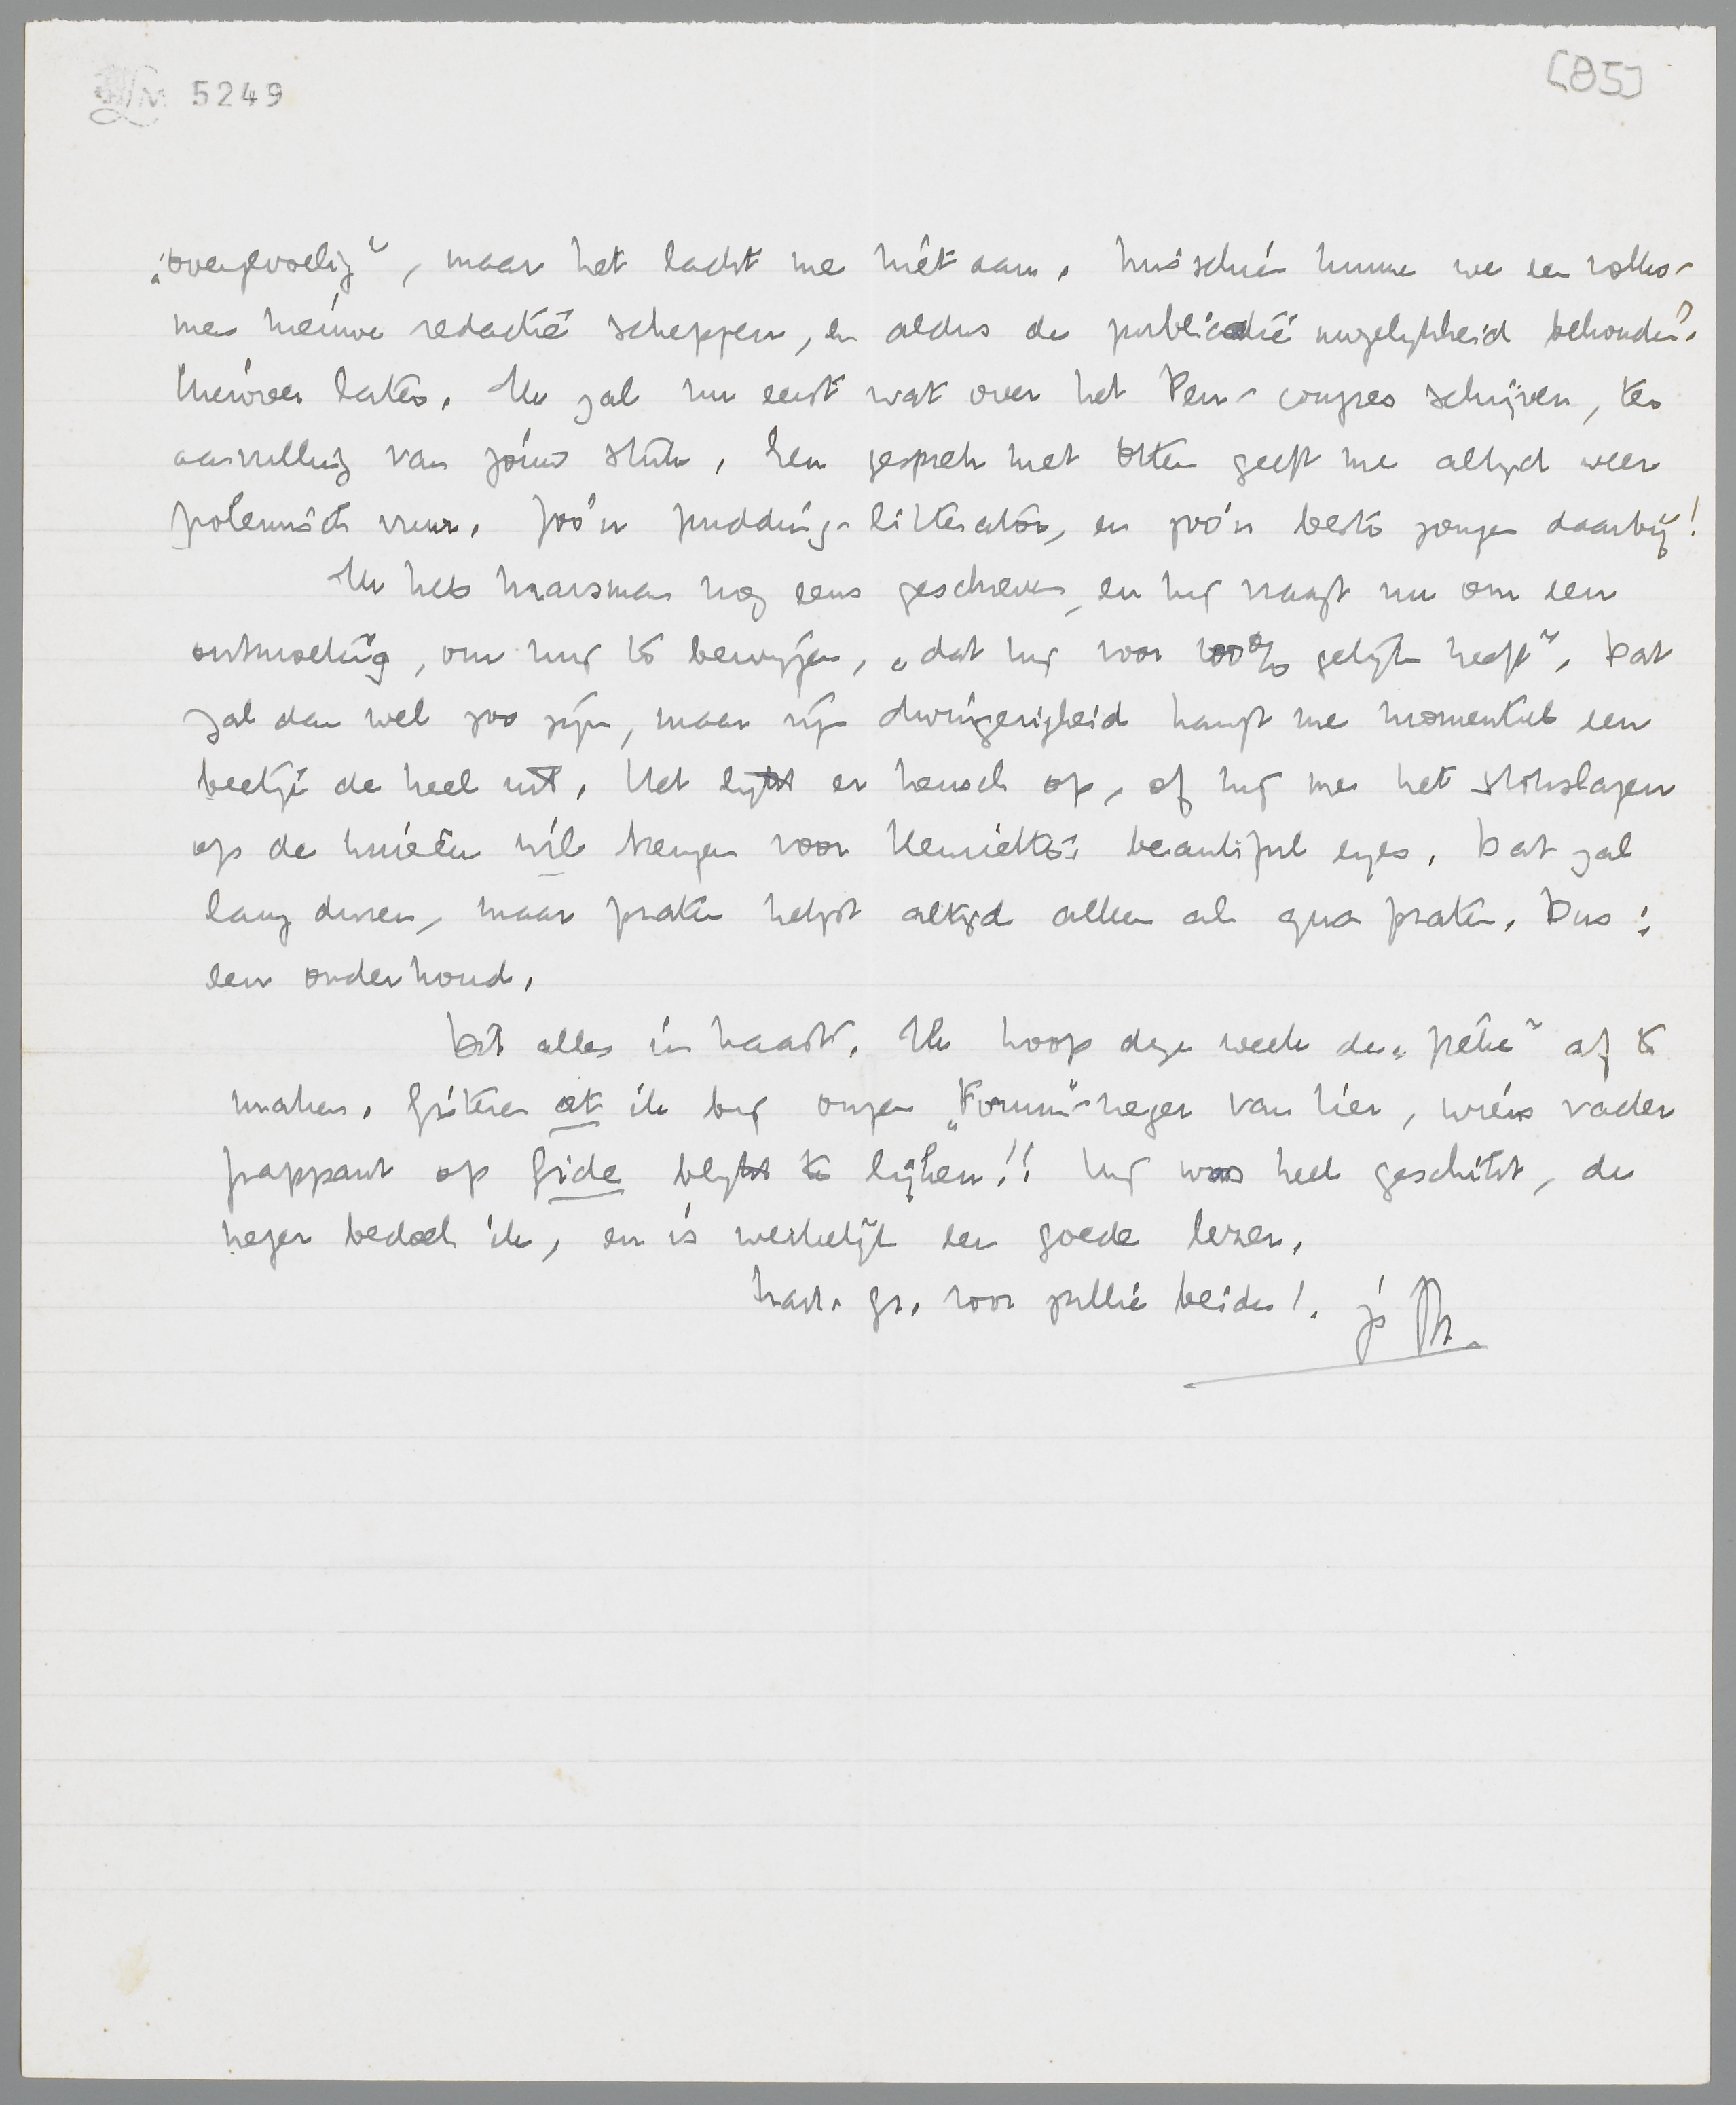 5249
[85]
„overgevoelig”, maar het lacht me niet aan. Misschien kunnen we een volko-
men nieuwe redactie scheppen, en aldus de publicatie mogelijkheid behouden.
Hierover later. Ik zal nu eerst wat over het Pen-congres schrijven, ter
aanvulling van jóuw stuk. Een gesprek met Otten geeft me altijd weer
polemisch vuur. Zoo'n pudding-litterator, en zoo'n beste jongen daarbij!
Ik heb Marsman nog eens geschreven, en hij vraagt nu om een
ontmoeting, om mij te bewijzen, „dat hij voor 100% gelijk heeft”. Dat
zal dan wel zoo zijn, maar zijn dwingerigheid hangt me momenteel een
beetje de keel uit. Het lijkt er heusch op, of hij me het stokslagen
op de knieën wil brengen voor Henriette's beautiful eyes. Dat zal
lang duren, maar praten helpt altijd alleen al qua praten. Dus:
een onderhoud.
Dit alles in haast. Ik hoop deze week de „ ” af te
maken. Gisteren at ik bij onzen „Forum”-neger van hier, wiens vader
frappant op Gide blijkt te lijken!! Hij was heel geschikt, de
neger bedoel ik, en is werkelijk een goede lezer.
Hart. gr. voor jullie beiden! je M.